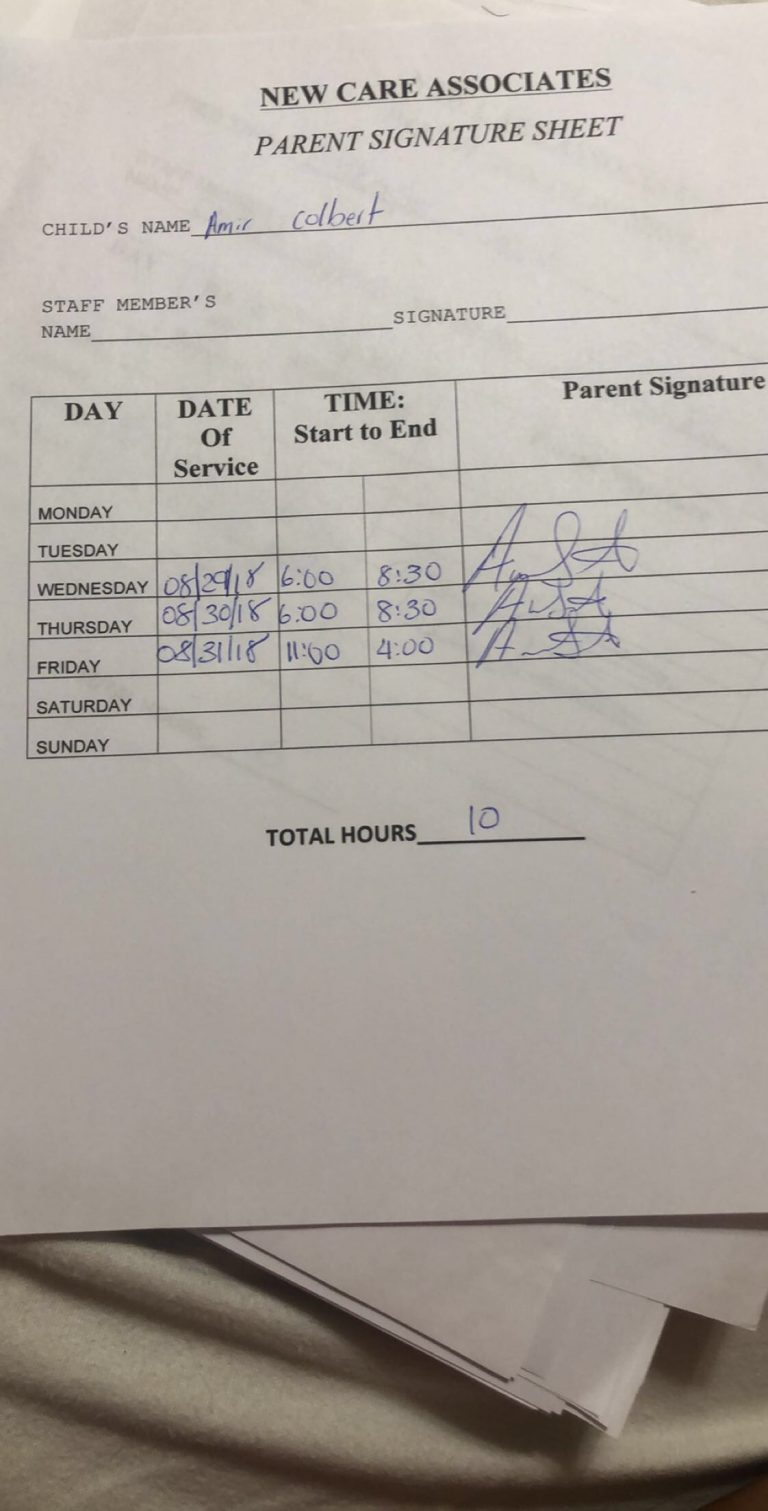 NEW CARE ASSOCIATES
PARENT SIGNATURE SHEET
CHILD'S NAME Amir Colbert
STAFF MEMBER'S
NAME SIGNATURE
DAY DATE Of Service TIME: Start to End Parent Signature
MONDAY
TUESDAY
WEDNESDAY 08/29/18 6:00 8:30
THURSDAY 08/30/18 6:00 8:30
FRIDAY 08/31/18 11:00 4:00
SATURDAY
SUNDAY
TOTAL HOURS 10